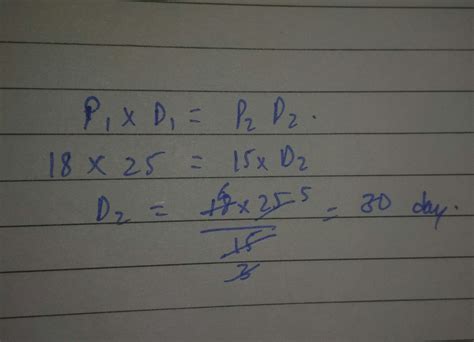 P₁ × D₁ = P₂ D₂.
18 × 25 = 15 × D₂
D₂ = 18 6 × 25 5 / 15 3 = 30 day.